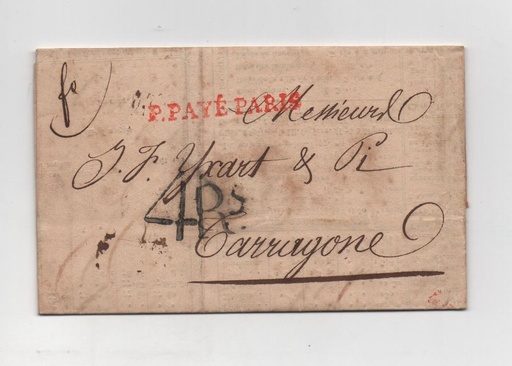 fo
P.PAYÉ PARIS
Messieurs
J. F. Yxart & Pi
4Rs
Tarragone